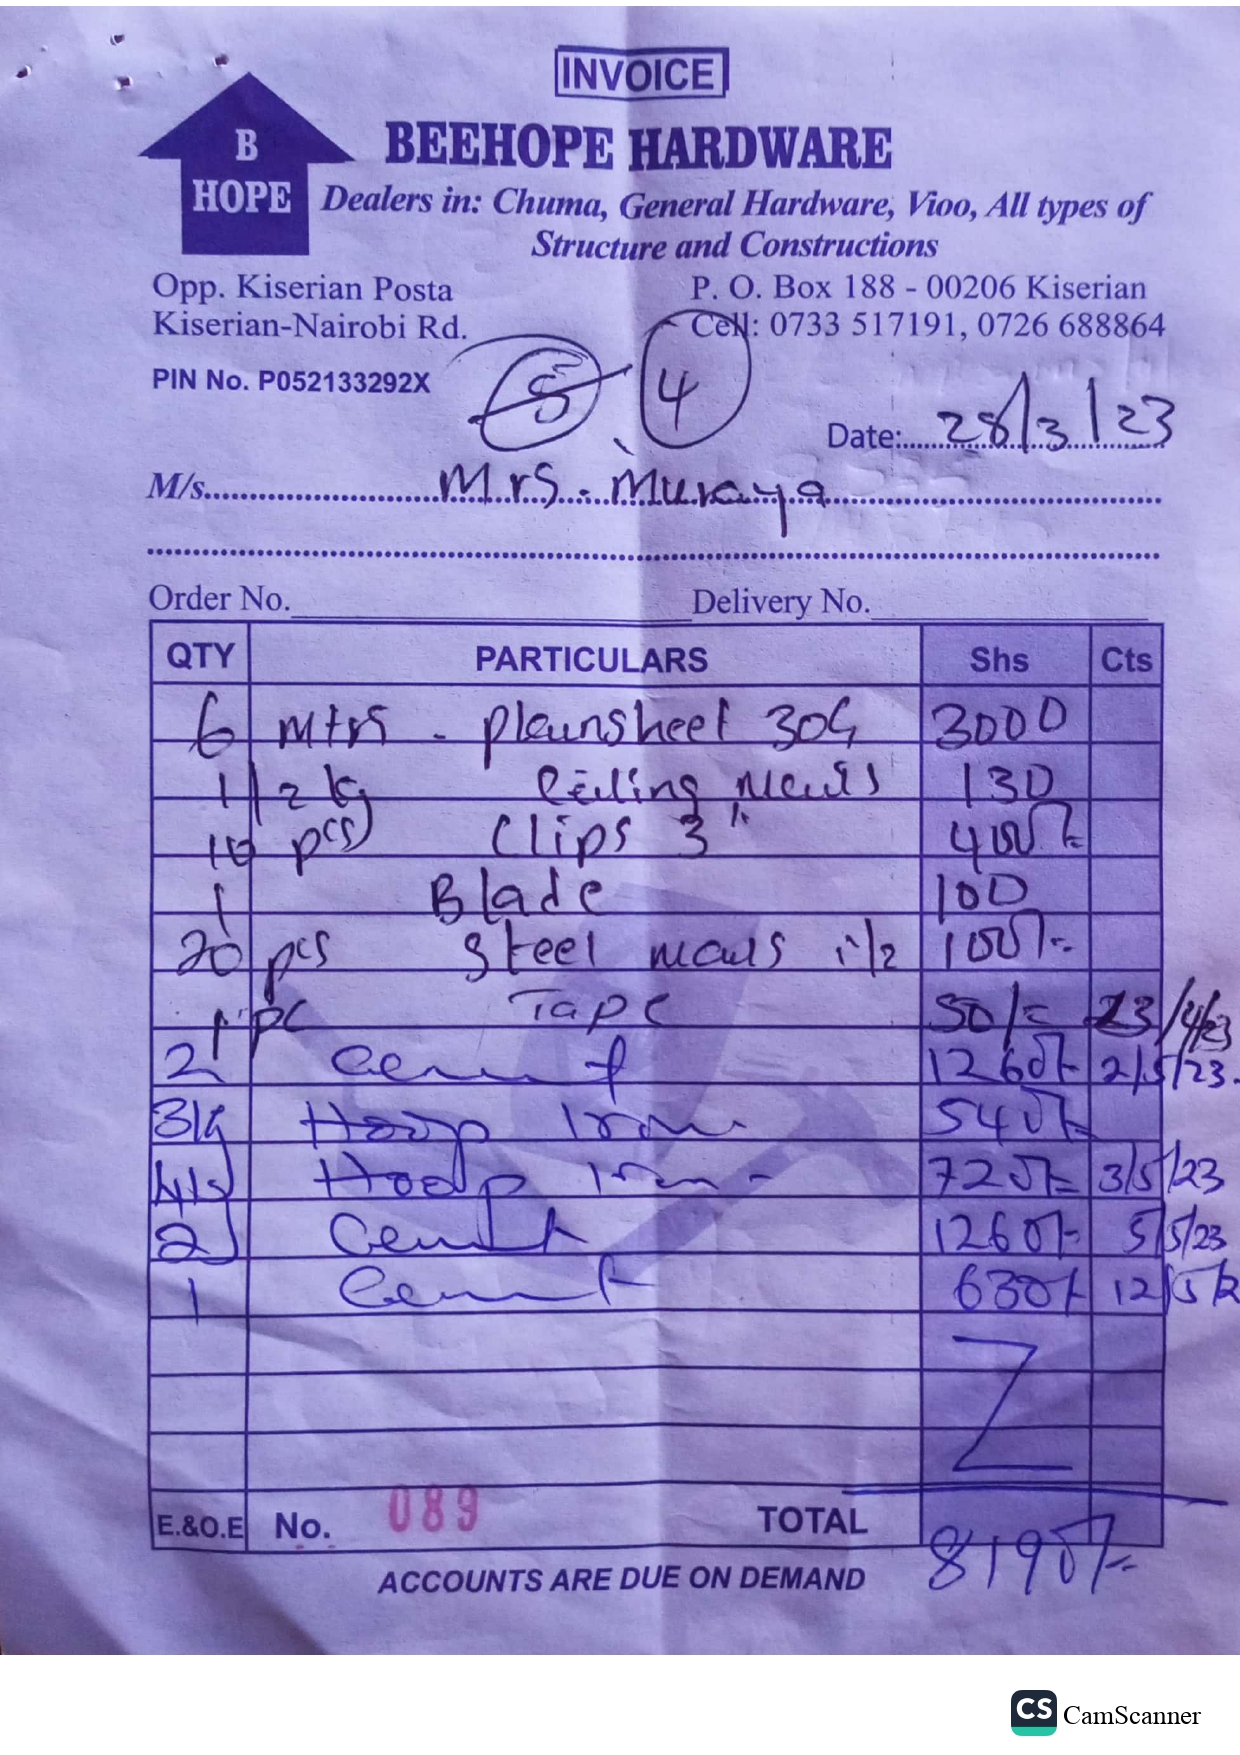 INVOICE
B
HOPE
BEEHOPE HARDWARE
Dealers in: Chuma, General Hardware, Vioo, All types of
Structure and Constructions
Opp. Kiserian Posta
Kiserian-Nairobi Rd.
P. O. Box 188 - 00206 Kiserian
Cell: 0733 517191, 0726 688864
PIN No. P052133292X
4
Date: 28/3/23
M/s. Mrs. Muraya
Order No. Delivery No.
QTY PARTICULARS Shs Cts
6 Mtrs - plainsheet 30G 3000
1/2 kg Ceiling nails 130
10 pcs Clips 3" 400/=
1 Blade 100
20 pcs Steel nails 1 1/2 100/=
1 pc Tape 50/= 23/4/23
2 Cement 1260/= 2/5/23.
3kg Hoop Iron 540/=
4kg Hoop Iron - 720/= 3/5/23
2 Cement 1260/= 5/5/23
1 Cement 630/= 12/5/2
E.&O.E No. 089 TOTAL 8190/=
ACCOUNTS ARE DUE ON DEMAND
CS CamScanner